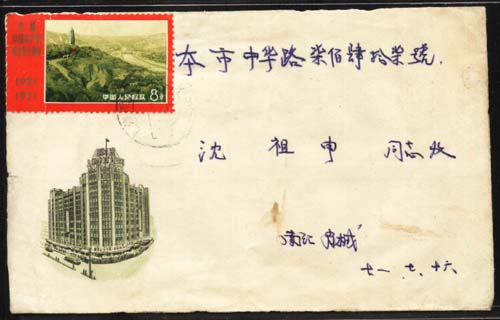 1921
1971
中国人民邮政
8分
本市中华路柒佰肆拾柒號.
沈祖申 同志收
七一.七.十六